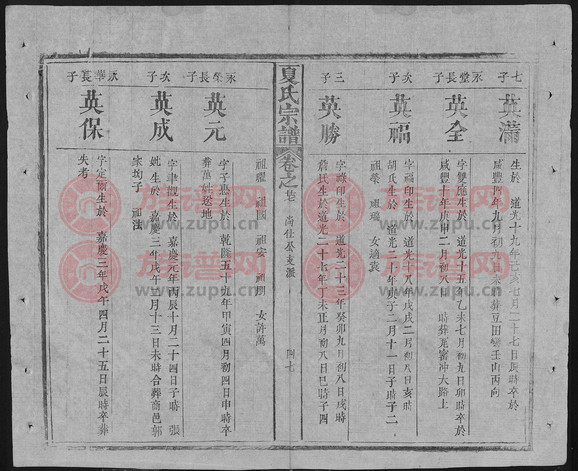 七子
英滿
生於 道光十九年己亥七月二十七日辰時卒於
咸豐四年九月初九日未時葬豆田灣壬山丙向
永堂長子
英全
字雙應生於 道光十五年乙未七月初九日卯時卒於
咸豐十年庚申二月初八日 時葬尾審沖大路上
次子
英福
字福印生於 道光十八年戊戌二月初八日亥時
胡氏生於 道光二十年庚子二月十一日子時子二
祖榮 祖瑞 女適袁
三子
英勝
字祿印生於 道光二十三年癸卯九月初八日戌時
詹氏生於道光二十七年丁未正月初八日巳時子四
夏氏宗譜
卷之 尚仕癸支派
四七
祖耀 祖國 祖安 祖朋 女許萬
永榮長子
英元
字子惠生於 乾隆五十九年甲寅四月初四日申時卒
葬萬姓塋地
次子
英成
字津潊生於 嘉慶元年丙辰十月二十四日子時 張
妣生於 嘉慶三年戊午三月十三日未時合葬商邑郭
家均子 祖法
永華長子
英保
字定爾生於 嘉慶三年戊午四月二十五日辰時卒葬
失考
族谱网
www.zupu.cn